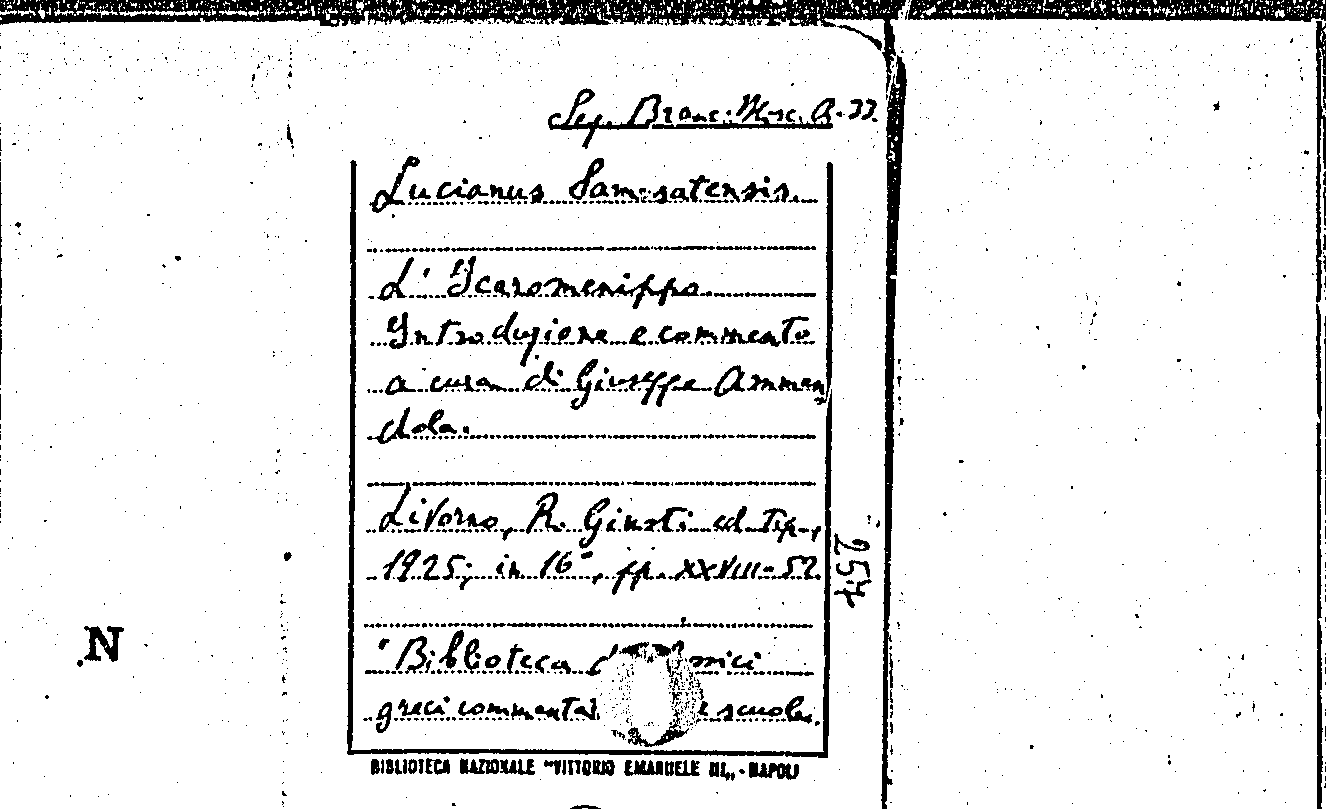 Sez. Branc. Misc. A. 33.
Lucianus Samosatensis.
L'Icaromenippo.
Introduzione e commento
a cura di Giuseppe Ammen
dola.
Livorno, R. Giusti ed. Tip.,
1925; in 16°, pp. XXVIII-52.
257
N
"Biblioteca
greci scuole.
BIBLIOTECA NAZIONALE "VITTORIO EMANUELE III„ - NAPOLI